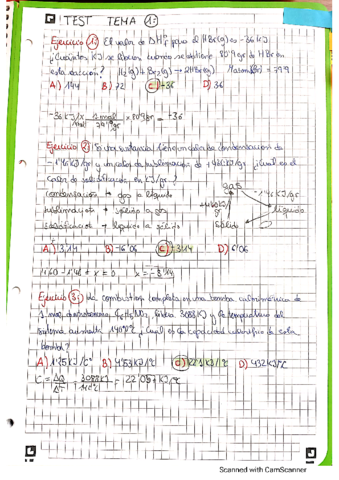 TEST TEMA 1:
Ejercicio 1: El valor de ΔHºf para el HBr(g) es -36 KJ
¿Cuántos KJ se liberan cuando se obtiene 80'9 gr de HBr en
esta reacción? H2(g) + Br2(g) → 2HBr(g) Masa =79'9
A) 144 B) 72 C) -36 D) 36
-36 KJ/mol x 1 mol/ x 80'9gr = -36
Ejercicio 2: calor de condensación de
KJ/gr y de sublimación de KJ/gr ¿Cuál es el
calor de solidificación en KJ/gr?
condensación → gas a líquido
sublimación → sólido a gas
solidificación → líquido a sólido
gas
líquido
sólido
A) 3'14 B) -6'06 C) -3'14 D) 6'06
x = -3'14
Ejercicio 3: La combustión completa en una bomba calorimétrica de
1 mol de nitrobenceno, C6H5NO2, libera 3088 KJ y la temperatura del
sistema aumenta 140ºC, ¿cuál es la capacidad calorífica de esta
bomba?
B) 4'53 KJ/ºC C) 22'1 KJ/ºC D) 432 KJ/ºC
C = ΔQ/ΔT = 3088KJ/140ºC = 22'057 KJ/ºC
Scanned with CamScanner